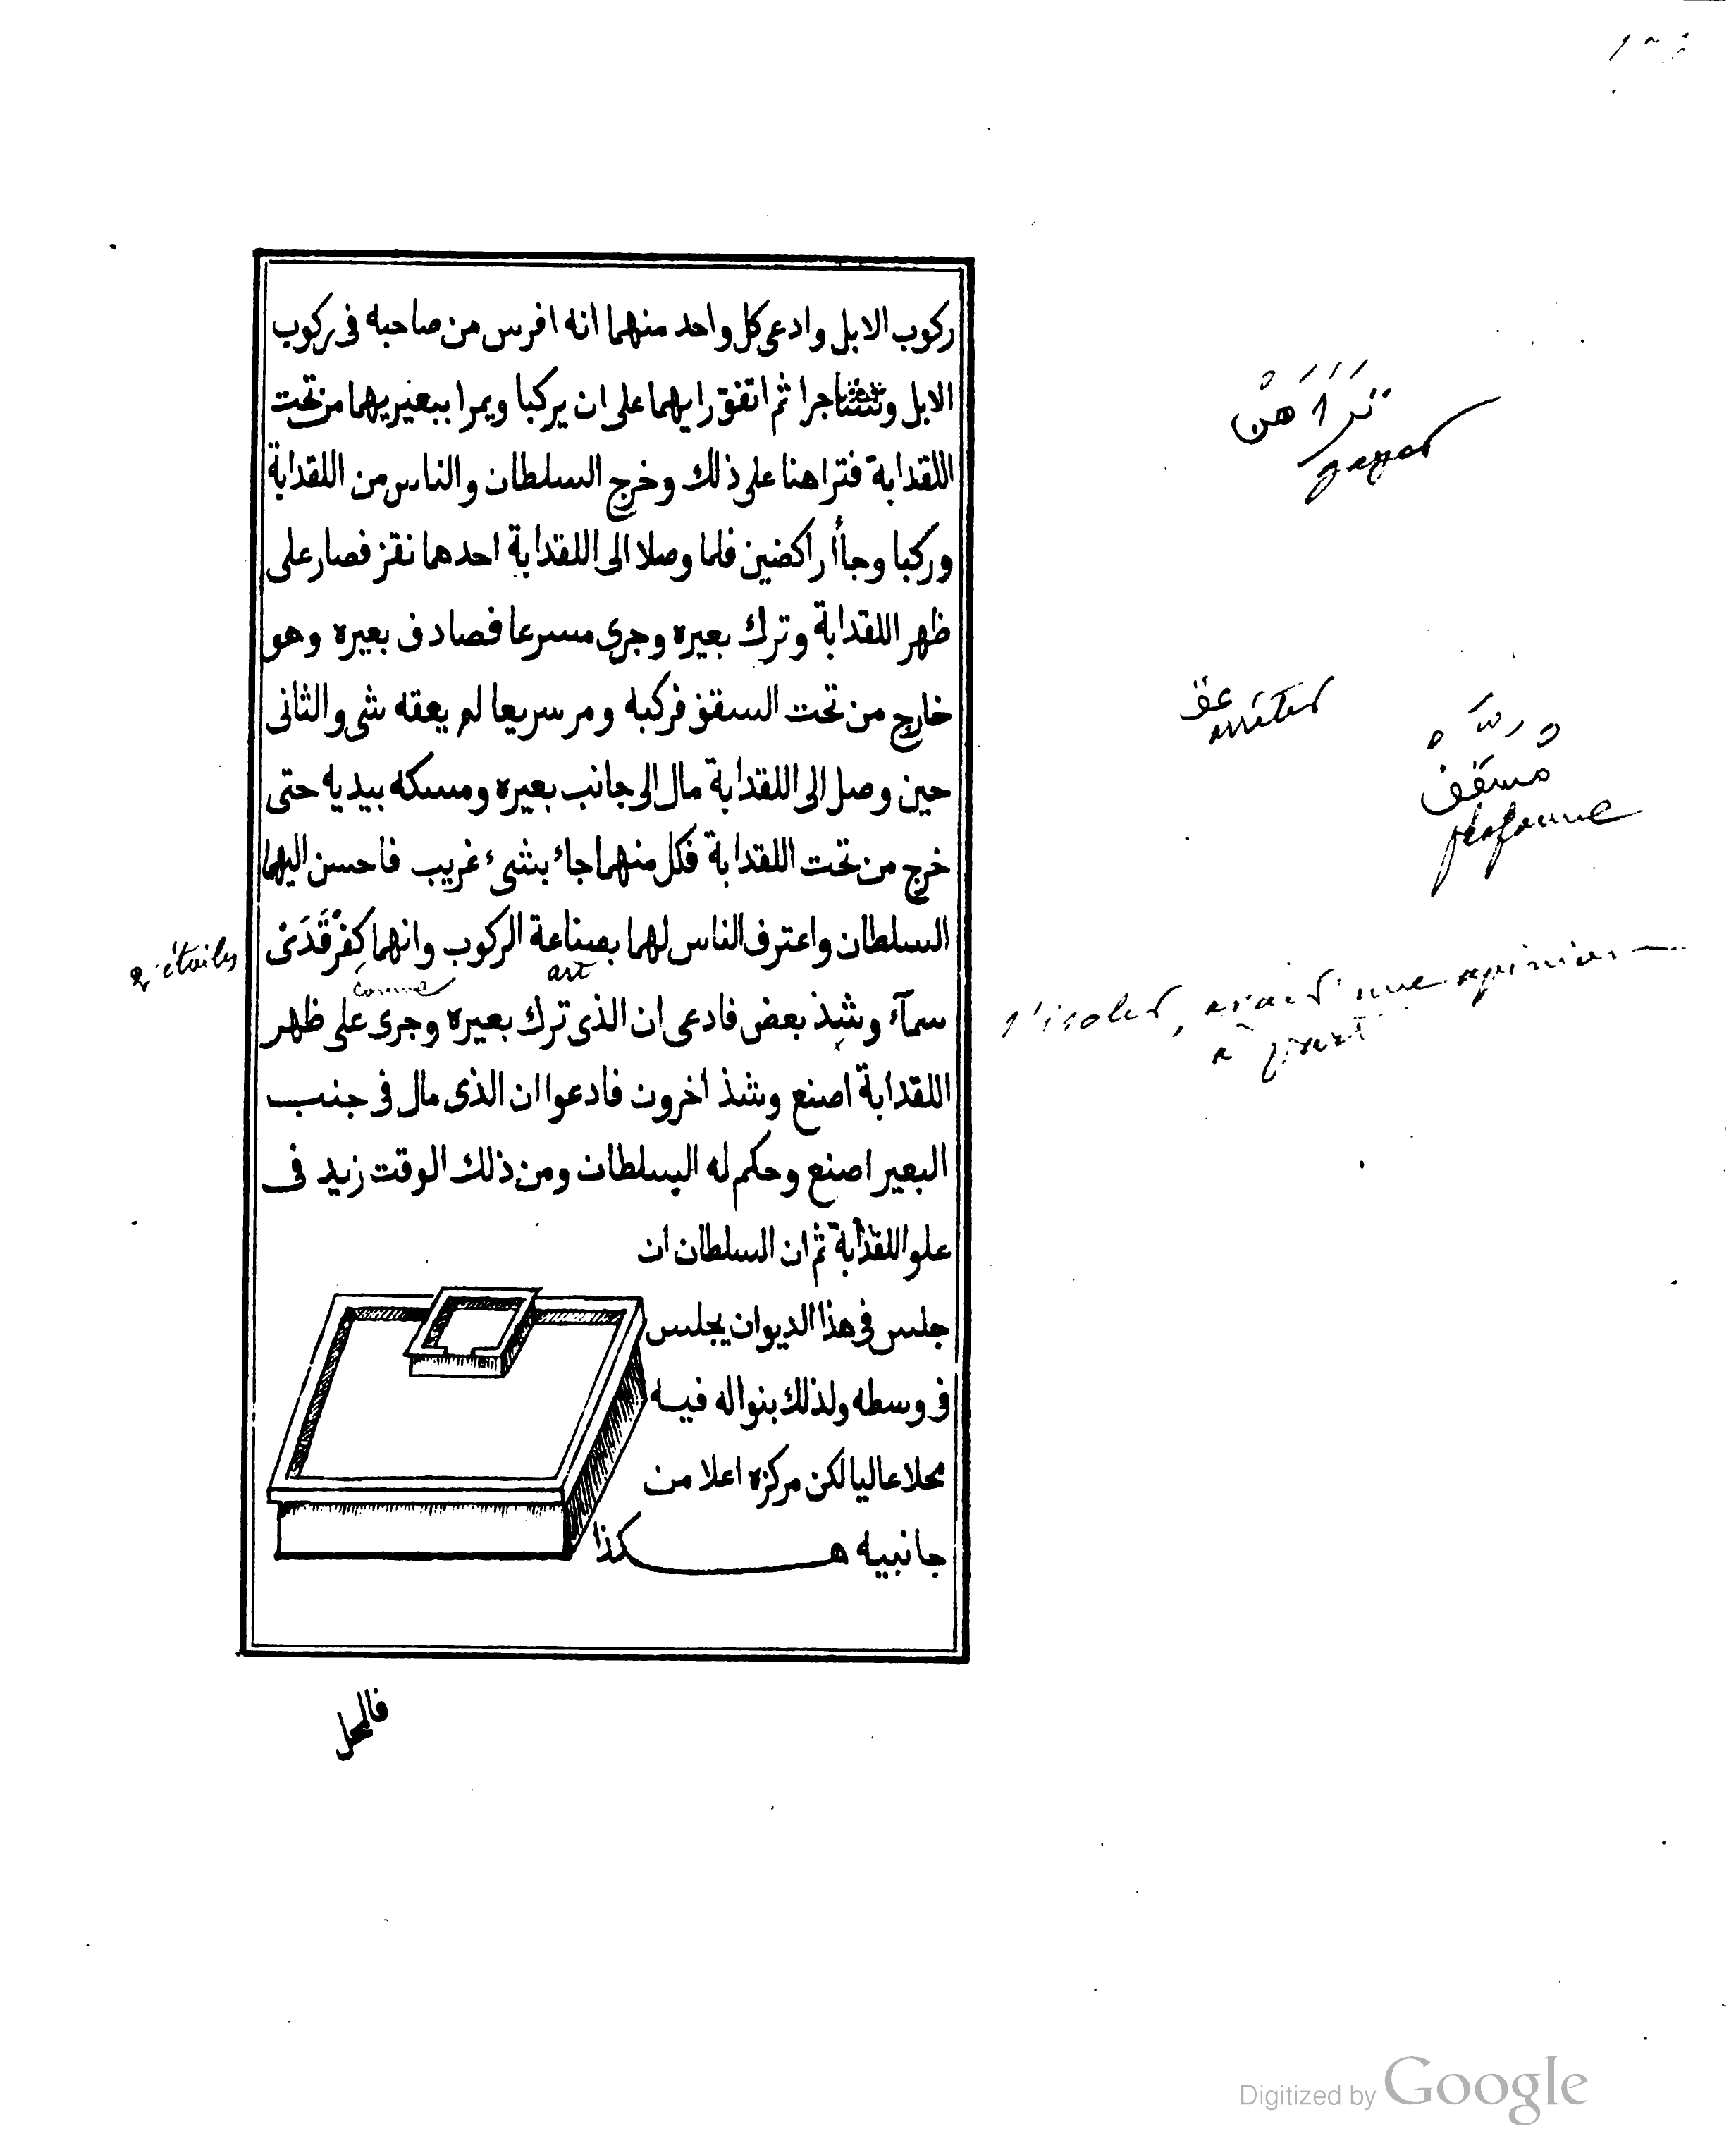 ركوب الابل وادعى كل واحد منهما انه افرس من صاحبه فى ركوب
الابل وتشاجرا ثم اتفق رايهما على ان يركبا ويمرا ببعيريهما من تحت
اللقدابة فتراهنا على ذلك وخرج السلطان والناس من اللقدابة
وركبا وجاأ راكضين فلما وصلا الى اللقدابة احدهما نقز فصار على
ظهر اللقدابة وترك بعيره وجرى مسرعا فصادف بعيره وهو
خارج من تحت السقف فركبه ومر سريعا لم يعقه شى والثانى
حين وصل الى اللقدابة مال الى جانب بعيره ومسكه بيديه حتى
خرج من تحت اللقدابة فكل منهما جاء بشىء غريب فاحسن اليهما
السلطان واعترف الناس لهما بصناعة الركوب وانهما كفرقدى
سمآء وشذ بعض فادعى ان الذى ترك بعيره وجرى على ظهر
اللقدابة اصنع وشذ اخرون فادعوا ان الذى مال فى جنب
البعير اصنع وحكم له السلطان ومن ذلك الوقت زيد فى
علو اللقدابة ثم ان السلطان ان
جلس فى هذا الديوان يجلس
فى وسطه ولذلك بنوا له فيه
محلا عاليا لكن مركزه اعلا من
جانبيه هكذا
فالمحل
تَرَاَهَنْ
gager
عق
arrêter
مسقف
plafonné
2 étoiles
comme
art
s'isoler, avoir une opinion
à part
Digitized by Google